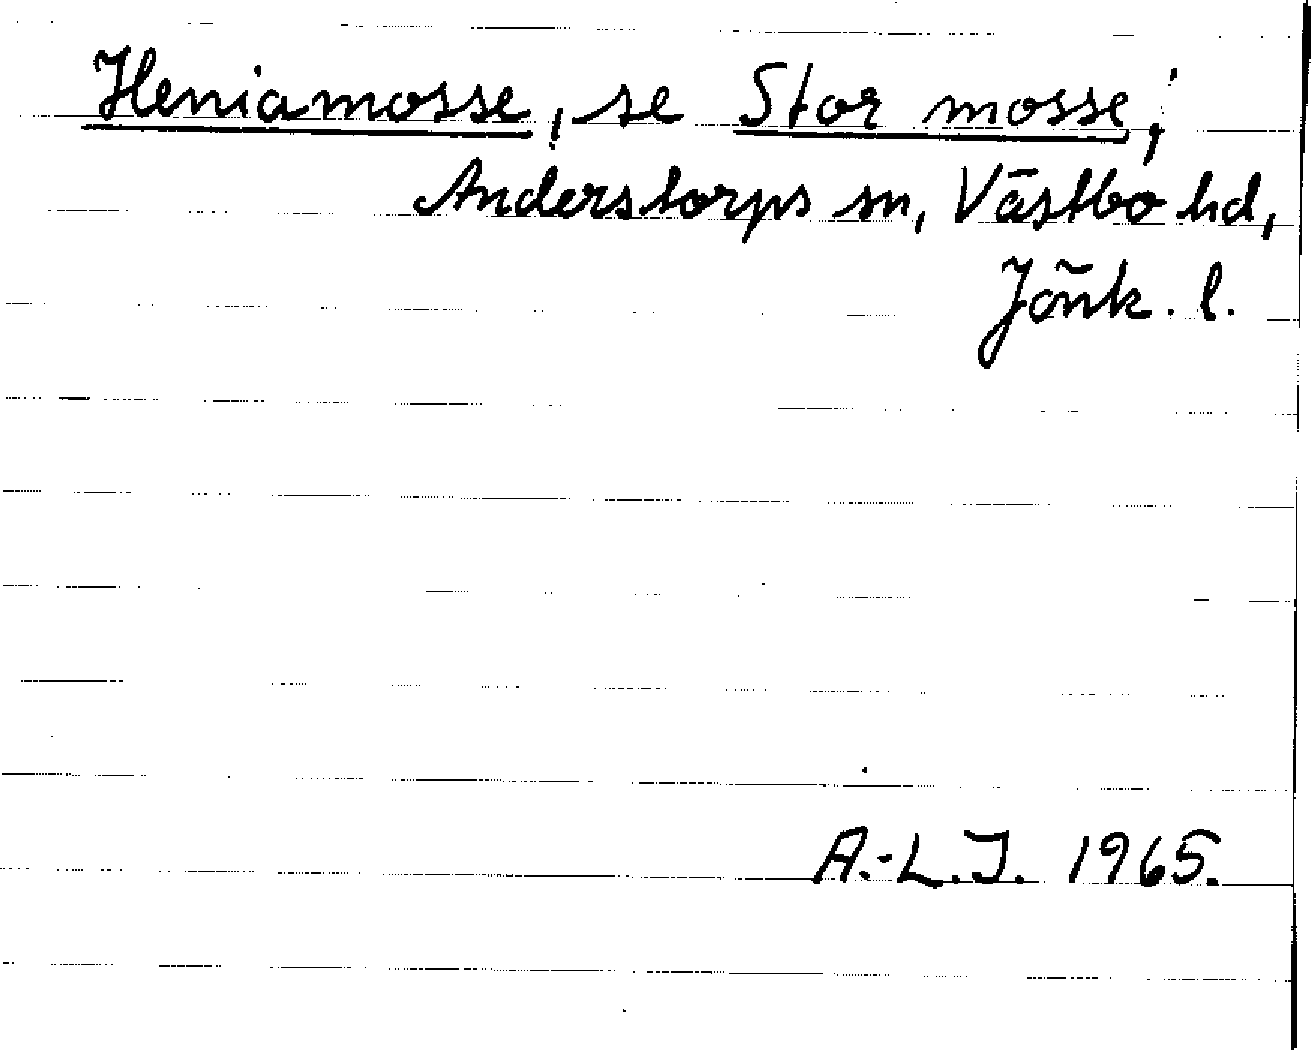 Heniamosse, se Stor mosse,
Anderstorps sn, Västbo hd,
Jönk. l.
A.-L.J. 1965.